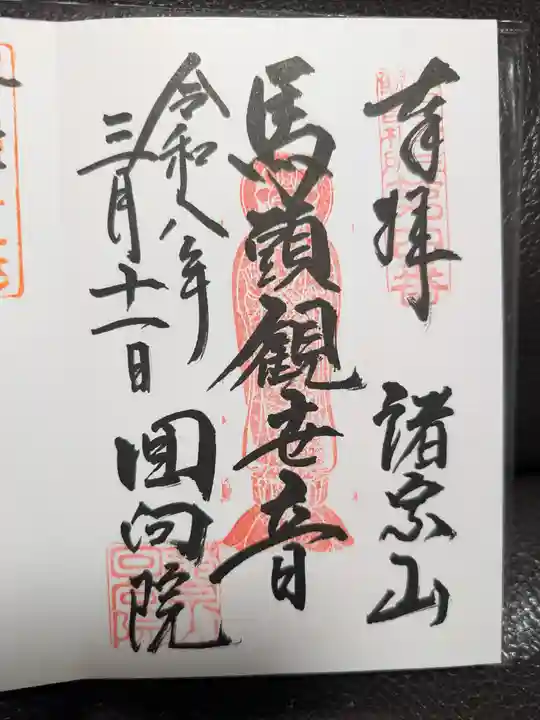 奉拝
諸宗山
馬頭観世音
令和八年
三月十一日
回向院